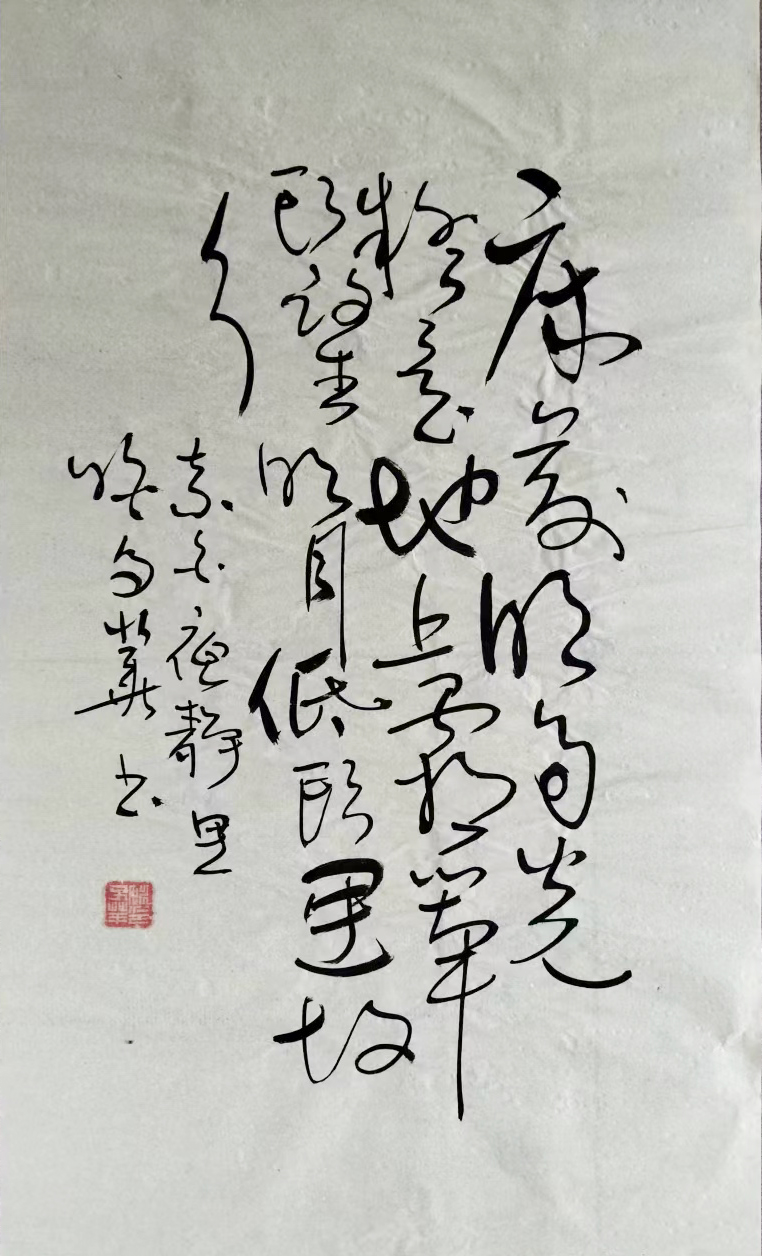 床前明月光
疑是地上霜举
头望明月低头思故
乡
李白夜静思
书